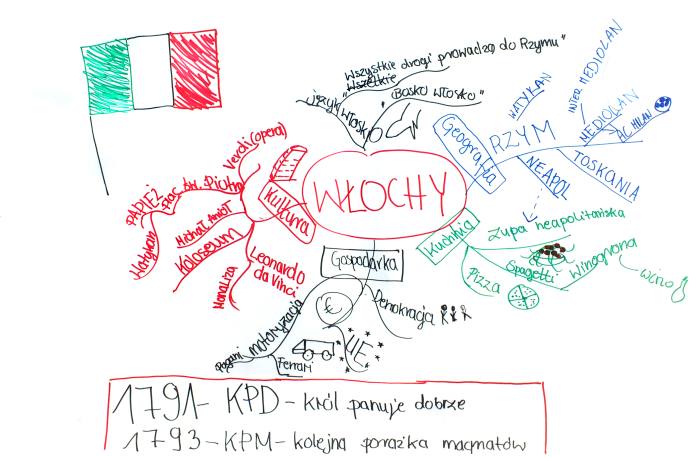 "Wszystkie drogi prowadzą do Rzymu"
Wszelkie
język włoski
"Bosko włosko"
WŁOCHY
Geografia
RZYM
WATYKAN
NEAPOL
TOSKANIA
MEDIOLAN
INTER MEDIOLAN
AC MILAN
Kuchnia
Zupa neapolitańska
Spagetti
Winogrona
wino
Pizza
Gospodarka
Demokracja
€
UE
motoryzacja
Pagani
Ferrari
Kultura
Verdi (opera)
Plac św. Piotra
PAPIEŻ
Watykan
Michał Anioł
Koloseum
Leonardo
da Vinci
Monaliza
1791 - KPD - król panuje dobrze
1793 - KPM - kolejna porażka magnatów